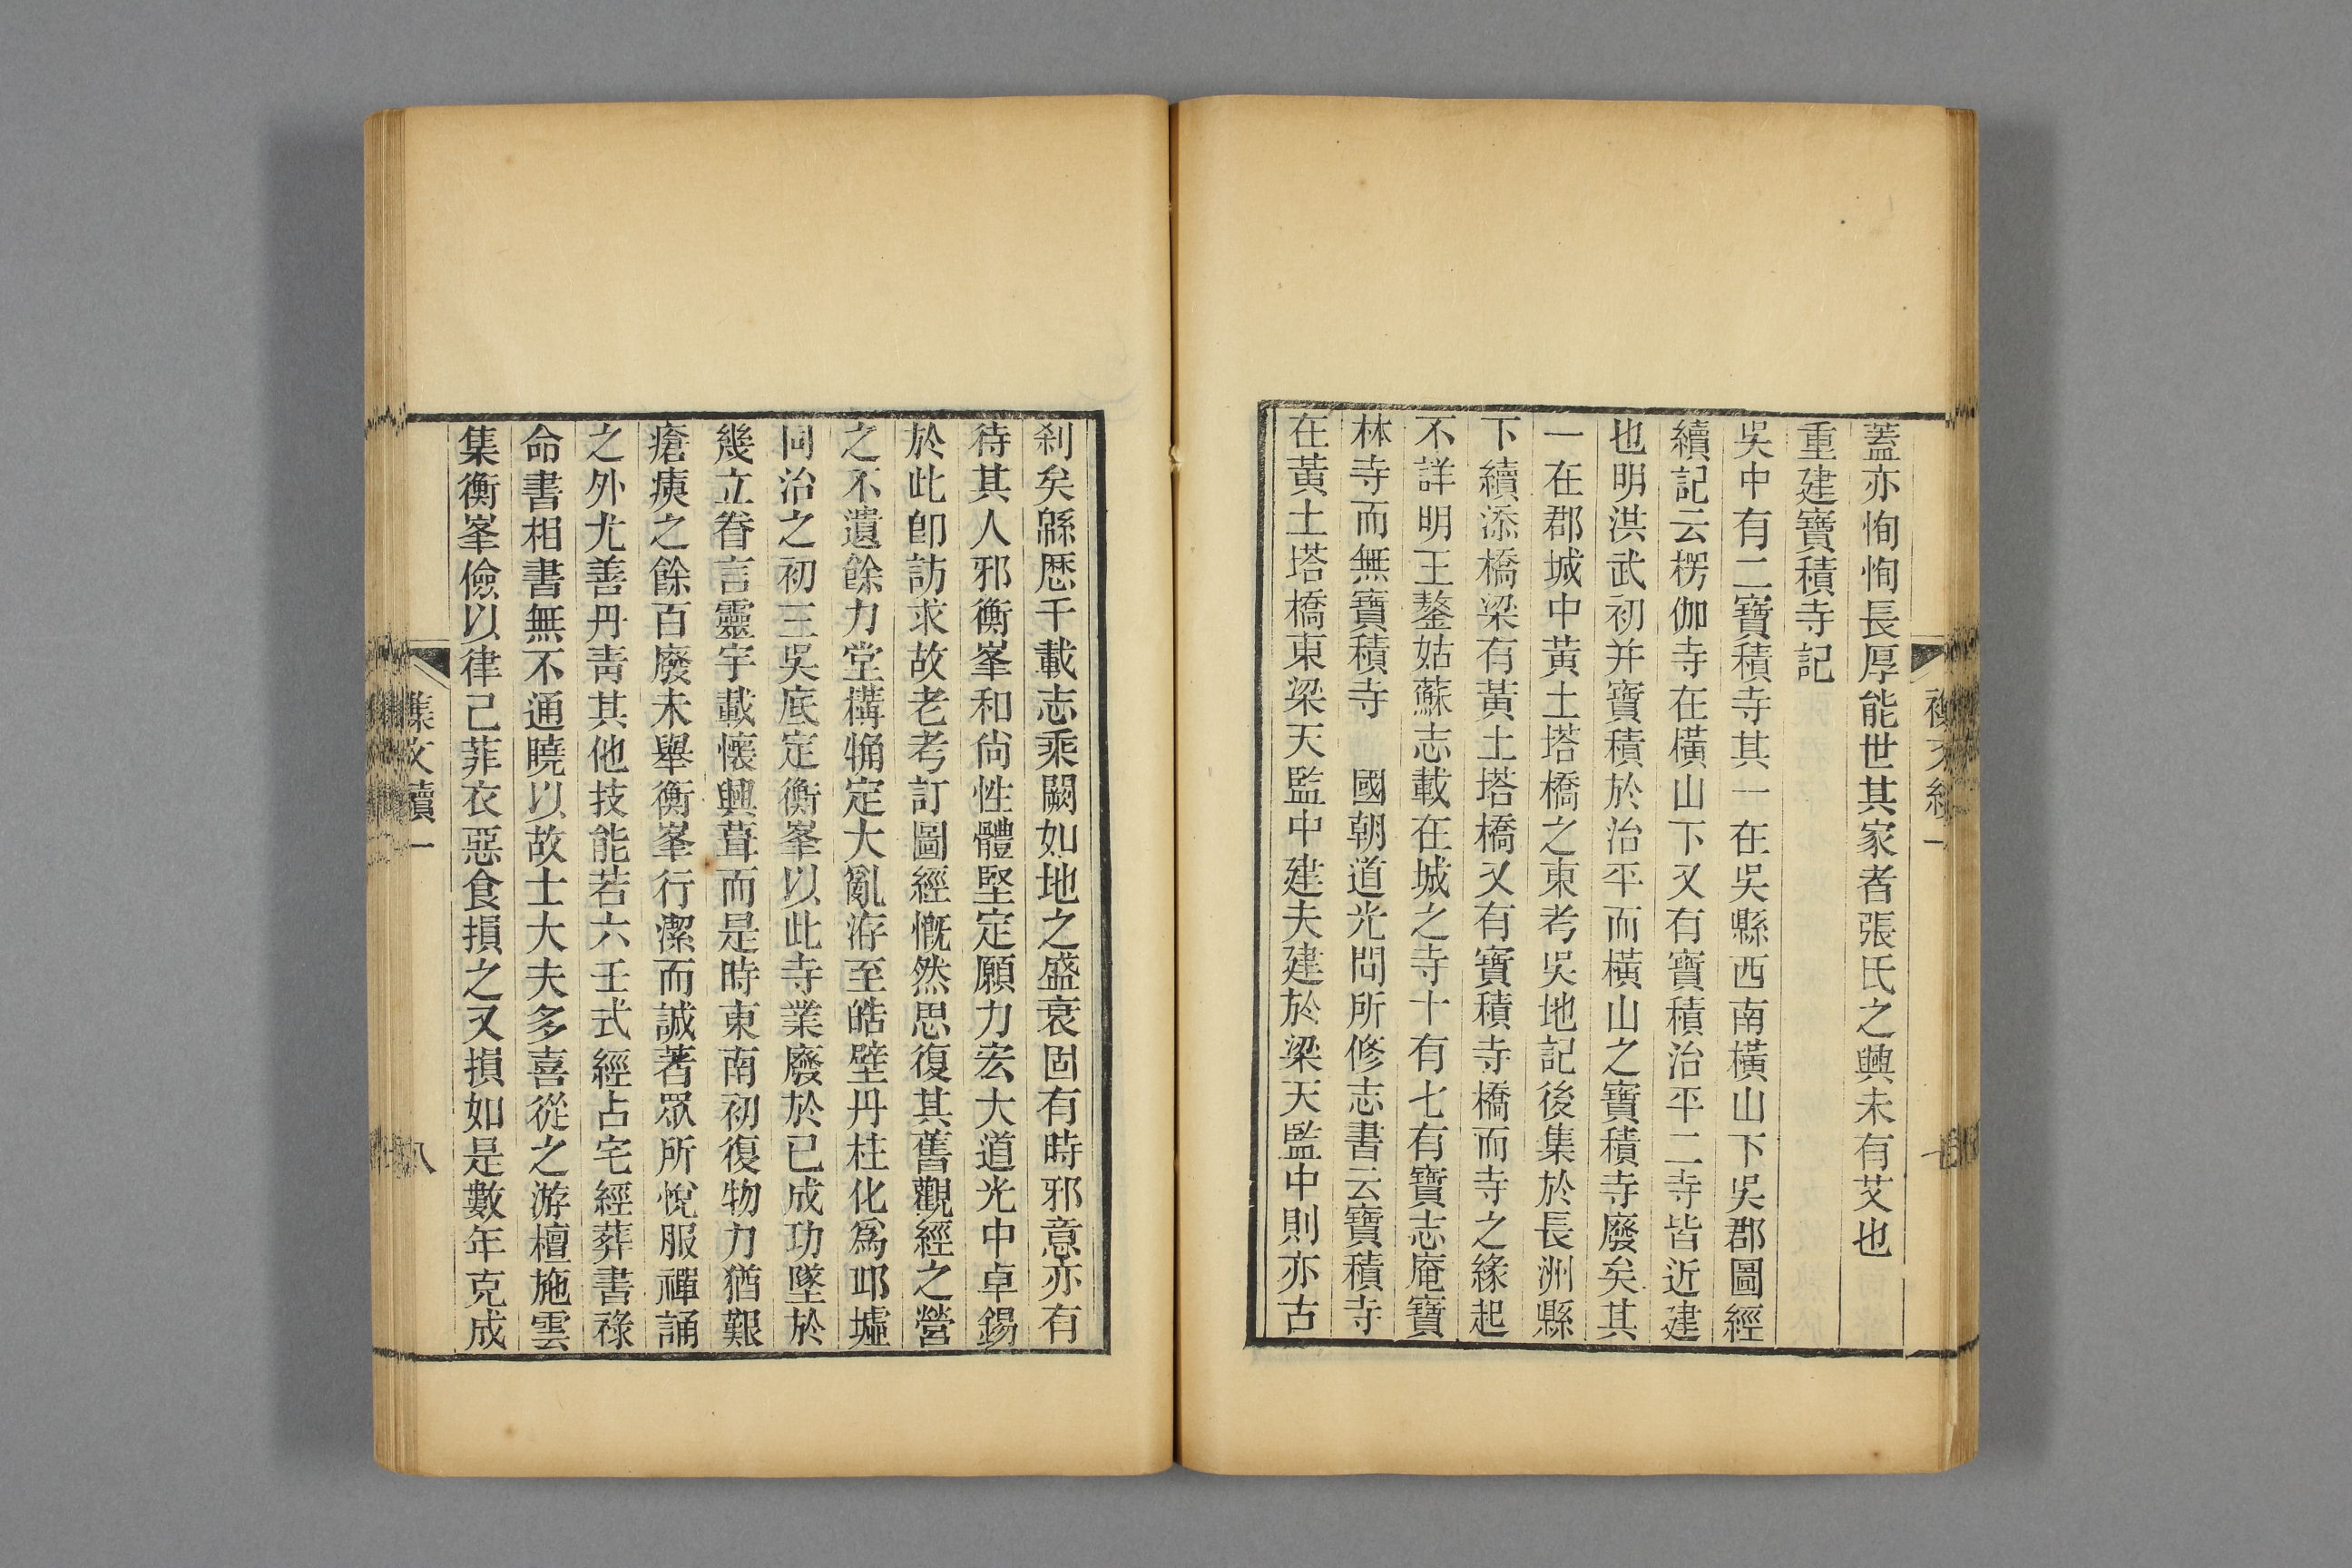 蓋亦恂恂長厚能世其家者張氏之興未有艾也
重建寶積寺記
吳中有二寶積寺其一在吳縣西南橫山下吳郡圖經
續記云楞伽寺在橫山下又有寶積治平二寺皆近建
也明洪武初并寶積於治平而橫山之寶積寺廢矣其
一在郡城中黃土塔橋之東考吳地記後集於長洲縣
下續添橋梁有黃土塔橋又有寶積寺橋而寺之緣起
不詳明王鏊姑蘇志載在城之寺十有七有寶志庵寶
林寺而無寶積寺　國朝道光間所修志書云寶積寺
在黃土塔橋東梁天監中建夫建於梁天監中則亦古
七
刹矣緜歷千載志乘闕如地之盛衰固有時邪意亦有
待其人邪衡峯和尙性體堅定願力宏大道光中卓錫
於此卽訪求故老考訂圖經慨然思復其舊觀經之營
之不遺餘力堂構觕定大亂洊至皓壁丹柱化爲邱墟
同治之初三吳底定衡峯以此寺業廢於已成功墜於
幾立眷言靈宇載懷興葺而是時東南初復物力猶艱
瘡痍之餘百廢未舉衡峯行潔而誠著眾所悅服禪誦
之外尤善丹靑其他技能若六壬式經占宅經葬書祿
命書相書無不通曉以故士大夫多喜從之游檀施雲
集衡峯儉以律己菲衣惡食損之又損如是數年克成
集文續一
八